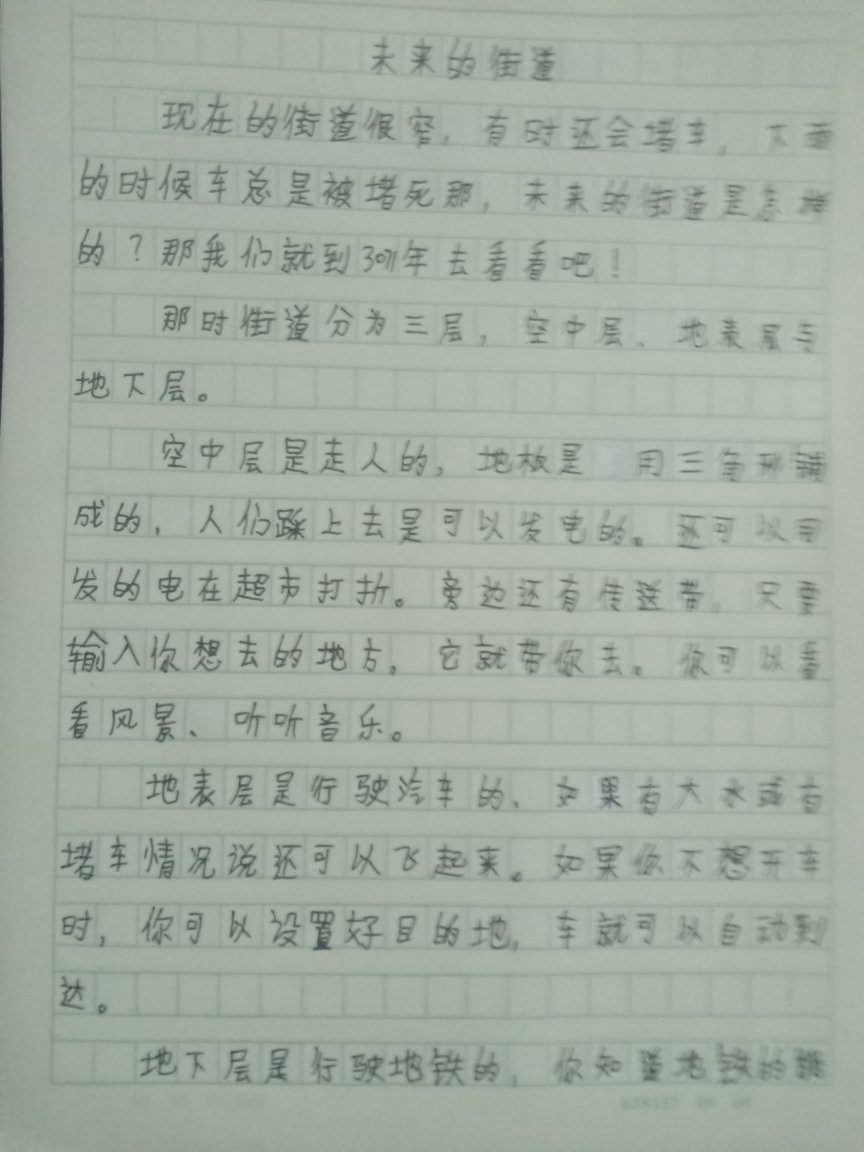 未来的街道
现在的街道很窄，有时还会堵车，下雨
的时候车总是被堵死那，未来的街道是怎样
的？那我们就到3011年去看看吧！
那时街道分为三层，空中层、地表层与
地下层。
空中层是走人的，地板是用三角形铺
成的，人们踩上去是可以发电的。还可以用
发的电在超市打折。旁边还有传送带，只要
输入你想去的地方，它就带你去。你可以看
看风景、听听音乐。
地表层是行驶汽车的、如果有大水或有
堵车情况说还可以飞起来。如果你不想开车
时，你可以设置好目的地，车就可以自动到
达。
地下层是行驶地铁的，你知道地铁的